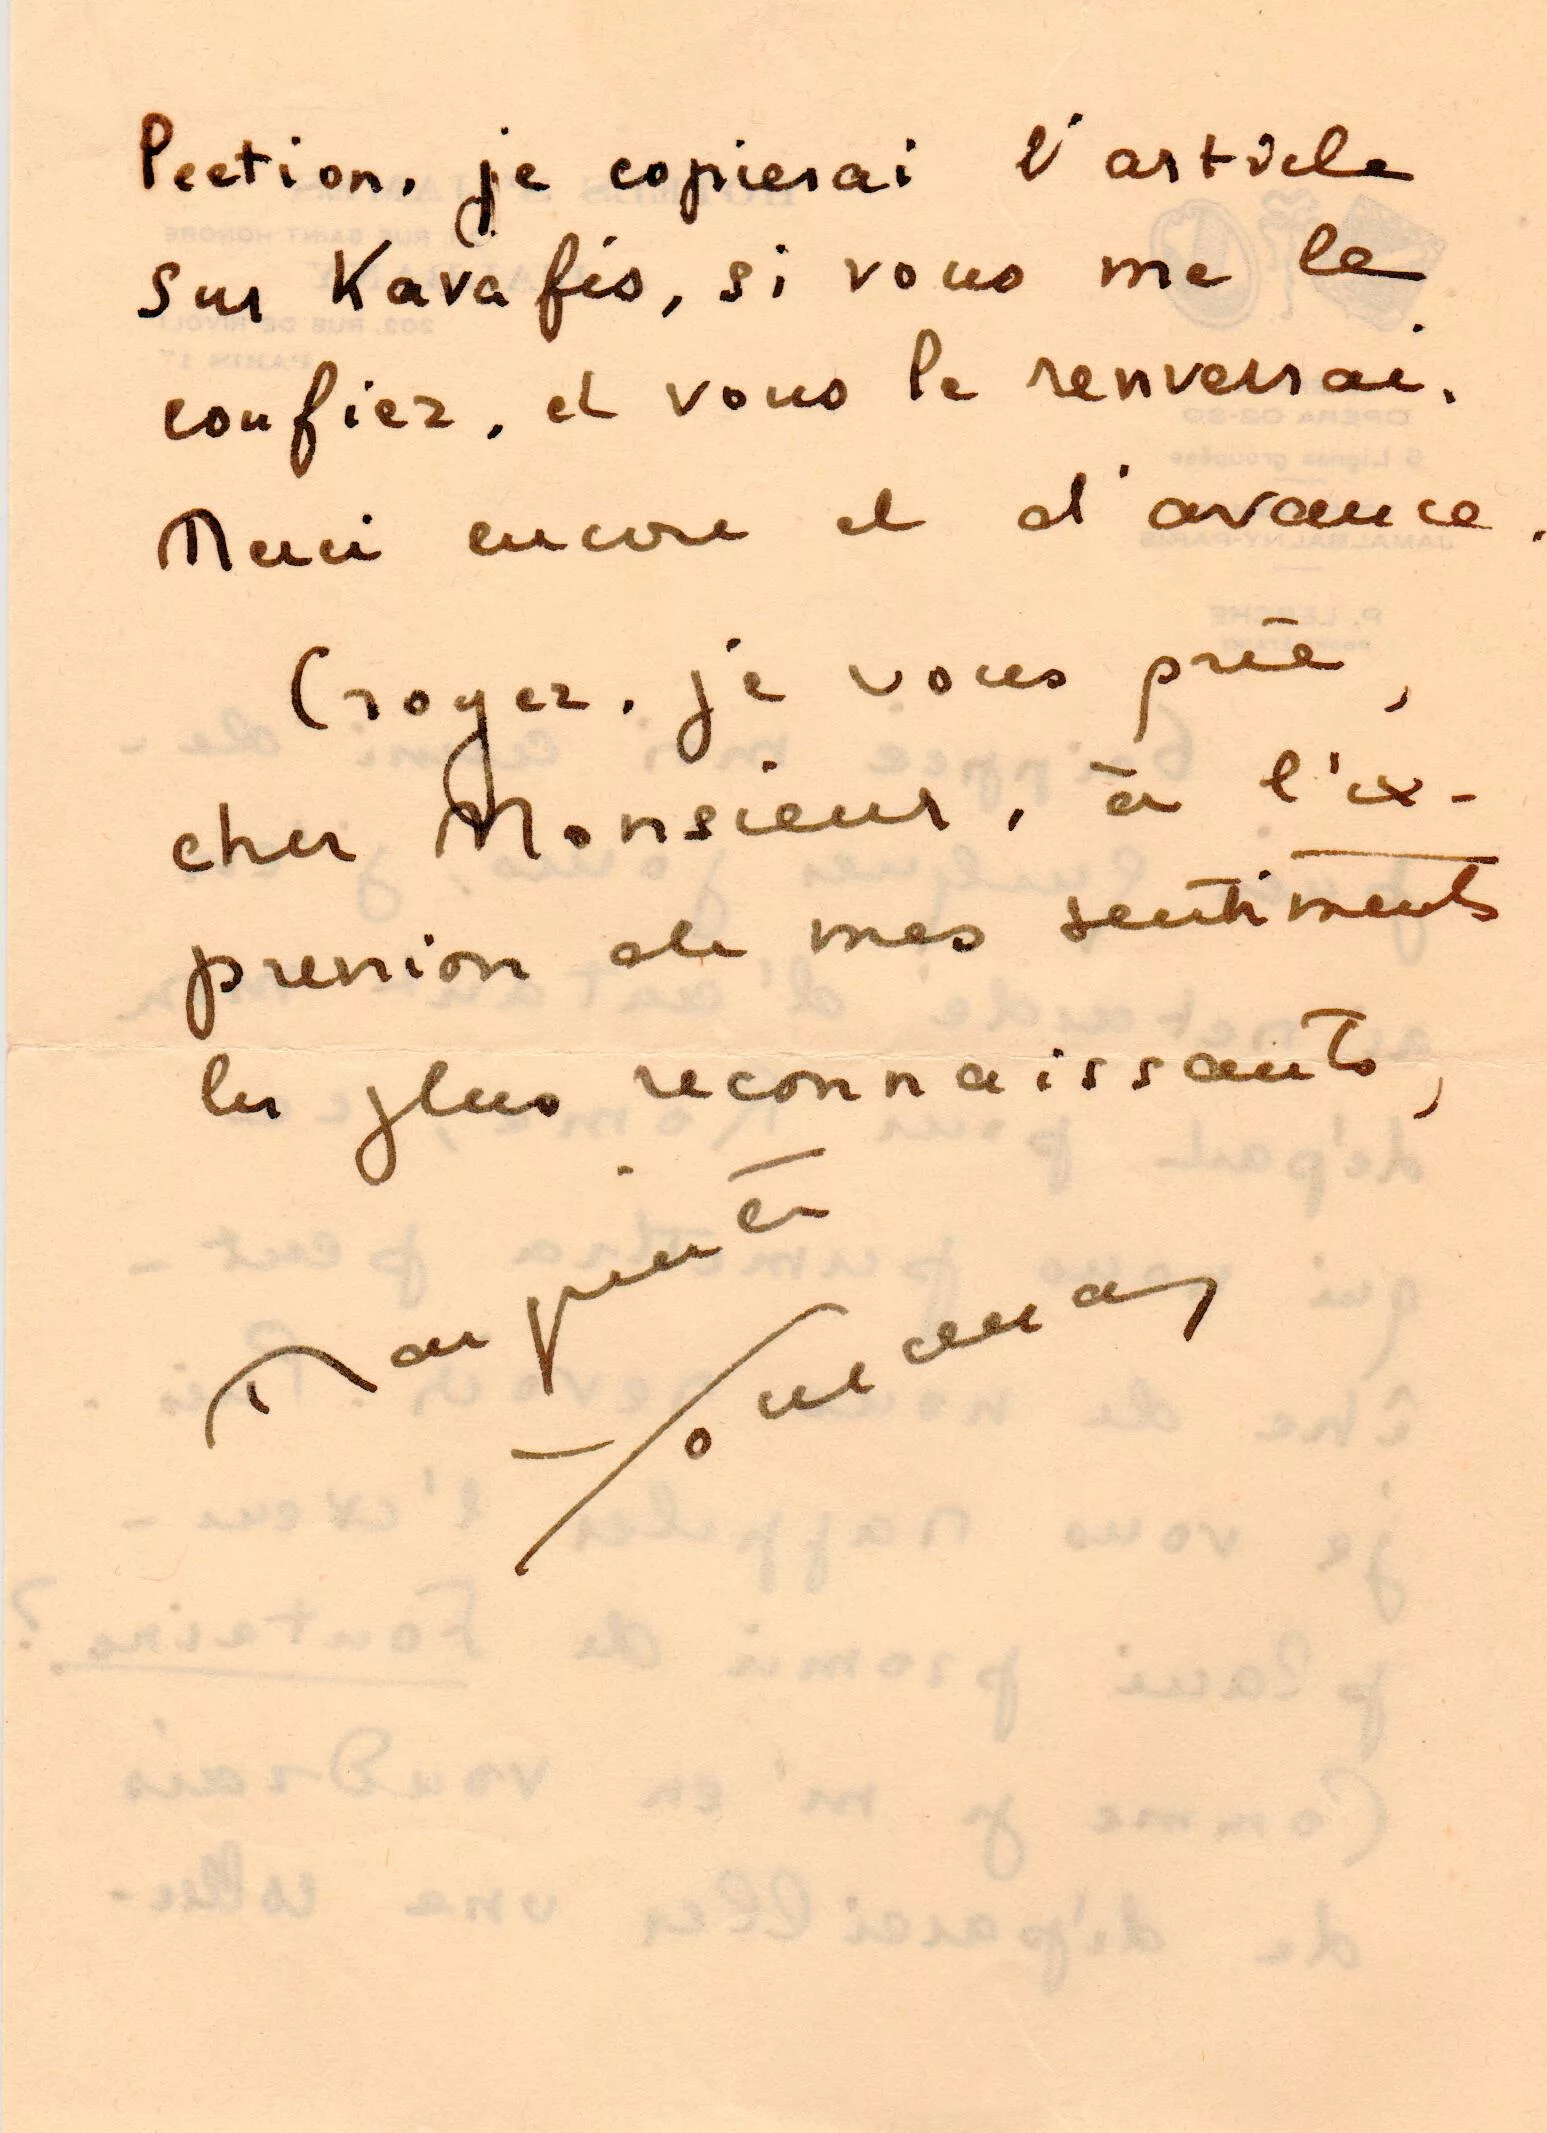 lection, je copierai l'article
sur Kavafis, si vous me le
confiez, et vous le renverrai.
Merci encore et d'avance.
Croyez, je vous prie,
cher Monsieur, à l'ex-
pression de mes sentiments
les plus reconnaissants,
Marguerite
Yourcenar